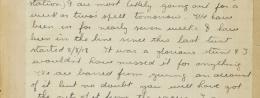 station, I are most likely going out for a
week or two's spell tomorrow. We have
been out for nearly seven weeks. I have
been in the line since this last tent
started 8/8/18. It was a glorious stunt & I
wouldn't have missed it for anything.
We are barred from giving an account
of it but no doubt you will have got
the